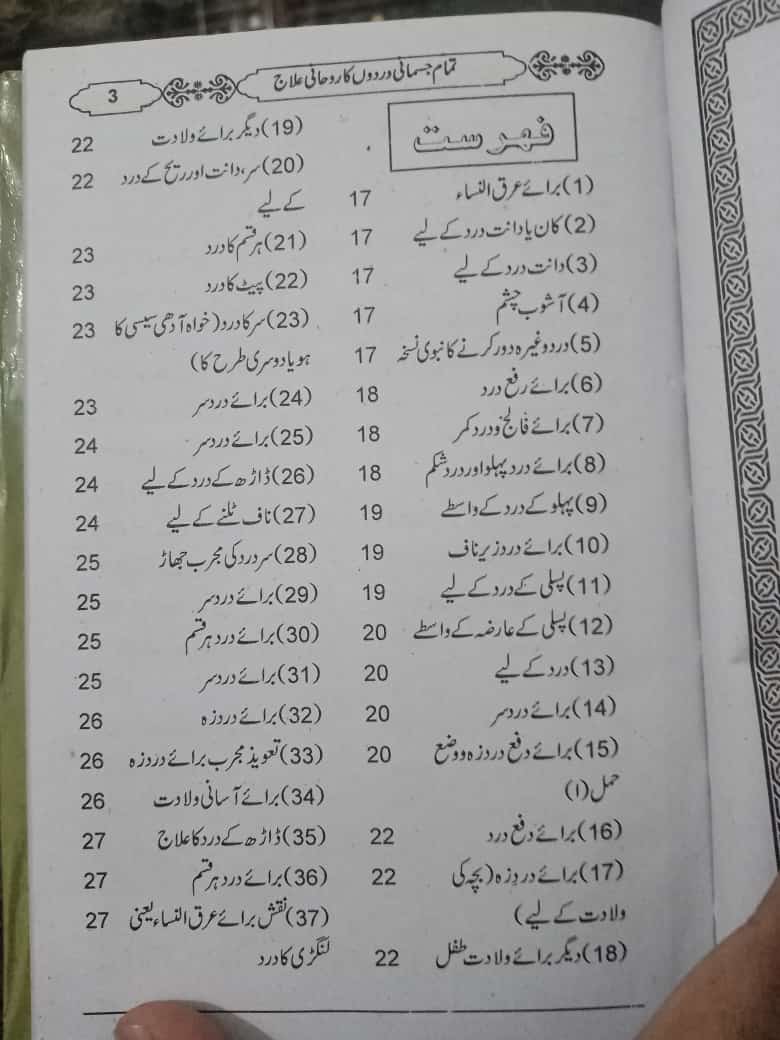 تمام جسمانی دردوں کا روحانی علاج
3
فہرست
(1) برائے عرق النساء 17
(2) کان یا دانت درد کے لیے 17
(3) دانت درد کے لیے 17
(4) آشوب چشم 17
(5) درد وغیرہ دور کرنے کا نبوی نسخہ 17
(6) برائے رفع درد 18
(7) برائے فالج و درد کمر 18
(8) برائے درد پہلو اور درد شکم 18
(9) پہلو کے درد کے واسطے 19
(10) برائے درد زیر ناف 19
(11) پسلی کے درد کے لیے 19
(12) پسلی کے عارضہ کے واسطے 20
(13) درد کے لیے 20
(14) برائے درد سر 20
(15) برائے دفع درد زہ و وضع 20
حمل (۱)
(16) برائے دفع درد 22
(17) برائے درد زہ (بچہ کی 22
ولادت کے لیے)
(18) دیگر برائے ولادت طفل 22
(19) دیگر برائے ولادت 22
(20) سر، دانت اور ریح کے درد 22
کے لیے
(21) ہر قسم کا درد 23
(22) پیٹ کا درد 23
(23) سر کا درد (خواہ آدھی سیسی کا 23
ہو یا دوسری طرح کا)
(24) برائے درد سر 23
(25) برائے درد سر 24
(26) ڈاڑھ کے درد کے لیے 24
(27) ناف ٹلنے کے لیے 24
(28) سر درد کی مجرب جھاڑ 25
(29) برائے درد سر 25
(30) برائے درد ہر قسم 25
(31) برائے درد سر 25
(32) برائے درد زہ 26
(33) تعویذ مجرب برائے درد زہ 26
(34) برائے آسانی ولادت 26
(35) ڈاڑھ کے درد کا علاج 27
(36) برائے درد ہر قسم 27
(37) نقش برائے عرق النساء یعنی 27
لنگڑی کا درد